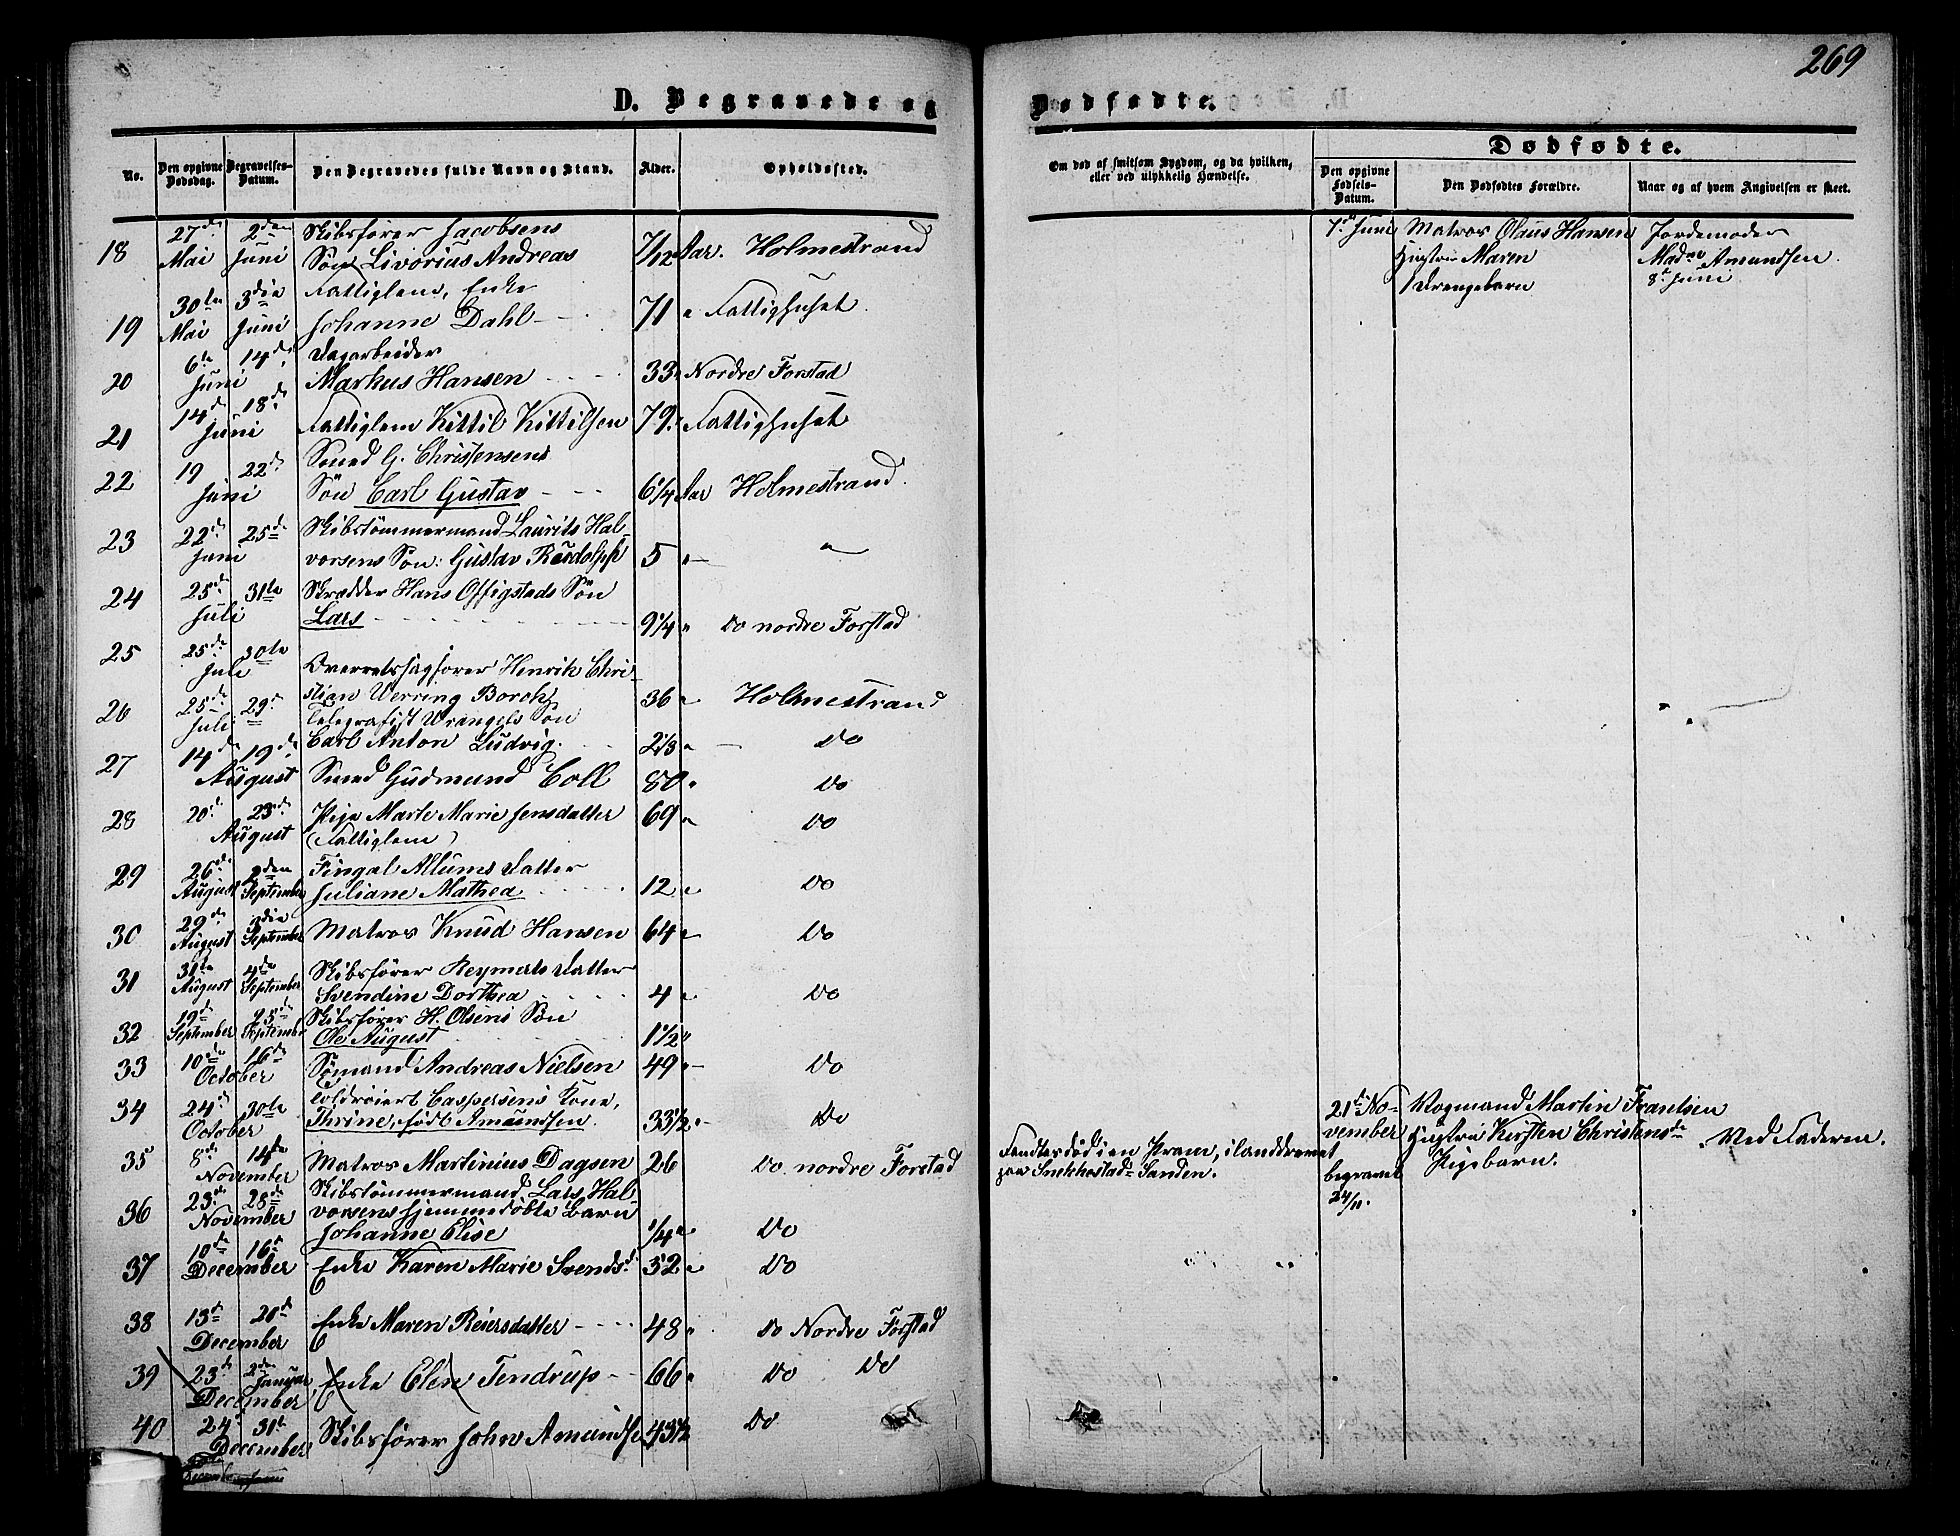 269
D. Begravede og Dødfødte.
No. Den opgivne Dødsdag. Begravelses-Datum. Den Begravedes fulde Navn og Stand. Alder. Opholdssted. Om død af smitsom Sygdom, og da hvilken, eller ved ulykkelig Hændelse.
Dødfødte.
Den opgivne Fødsels-Datum. Den Dødfødtes Forældre. Naar og af hvem Angivelsen er skeet.
18 27de Mai 2den Juni Skibsfører Jacobsens
Søn Livorius Andreas 7/12 Aar. Holmestrand
19 30te Mai 3die Juni Fattiglem, Enke
Johanne Dahl 71 " Fattighuset.
20 6te Juni 14de Dagarbeider
Markus Hansen 33 " Nordre Forstad
21 14de Juni 18de Fattiglem Kittil Kittilsen 79 " Fattighuset
22 19 Juni 22de Smed G. Christensens
Søn Carl Gustav 6 1/4 Aar Holmestrand.
23 22de Juni 25de Skibstömmermand Laurits Hal-
vorsens Søn: Gustav Rudolph 5 " "
24 25de Juli 31te Skrædder Hans Offigstads Søn
Lars 9 1/4 " Do nordre Forstad
25 25de Juli 30te Overretssagfører Henrik Chri-
stian Werring Borch 36 " Holmestrand
26 25de Juli 29de Telegrafist Wrangels Søn
Carl Anton Ludvig. 2 1/3 " Do
27 14de 19de August Smed Gudmund Coll 80 " Do
28 20de 23de August Pige Marte Marie Jensdatter 69 " Do
(Fattiglem)
29 26de August 2den September Fingal Allums Datter
Juliane Mathea 12 " Do
30 29de August 3die September Matros Knud Hansen 64 " Do
31 31te August 4de September Skibsfører Reymerts Datter
Svendine Dorthea 4 " Do
32 19de September 25de September Skibsfører H. Olsens Søn
Ole August 1 1/2 "
33 10de 16de October Sømand Andreas Nielsen 49 " Do
34 24de October 30te Toldroiert Caspersens Kone,
Thrine, født Amundsen. 33 1/2 " Do
35 8de 14de November Matros Martinius Dagsen 26 Do nordre Forstad Fandtes død i en Pram, ilanddrevet
paa Snekkestad-Sanden.
36 23de 28de November Skibstömmermand Lars Hal-
vorsens hjemmedøbte Barn
Johanne Elise 1/4 " Do
37 10de 16de December Enke Karen Marie Svendsd. 52 " Do
38 13de 20de December Enke Maren Reiersdatter 48 " Do Nordre Forstad
39 23de December 2den Januar Enke Elise Tendrup 66 " Do Do
40 24de 31te December Skibsfører John Amundse 43 1/2 Do
7de Juni Matros Olaus Hansen Jordemoder
Hustru Maren Madme Amundsen.
Drengebarn 8de Juni
21de No- Vogmand Martin Frantsen
vember Hustru Kirsten Christensd. Ved Faderen.
begravet Pigebarn.
24/11.